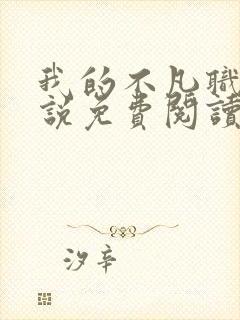 我的不凡職
說免費閱讀
汐辛